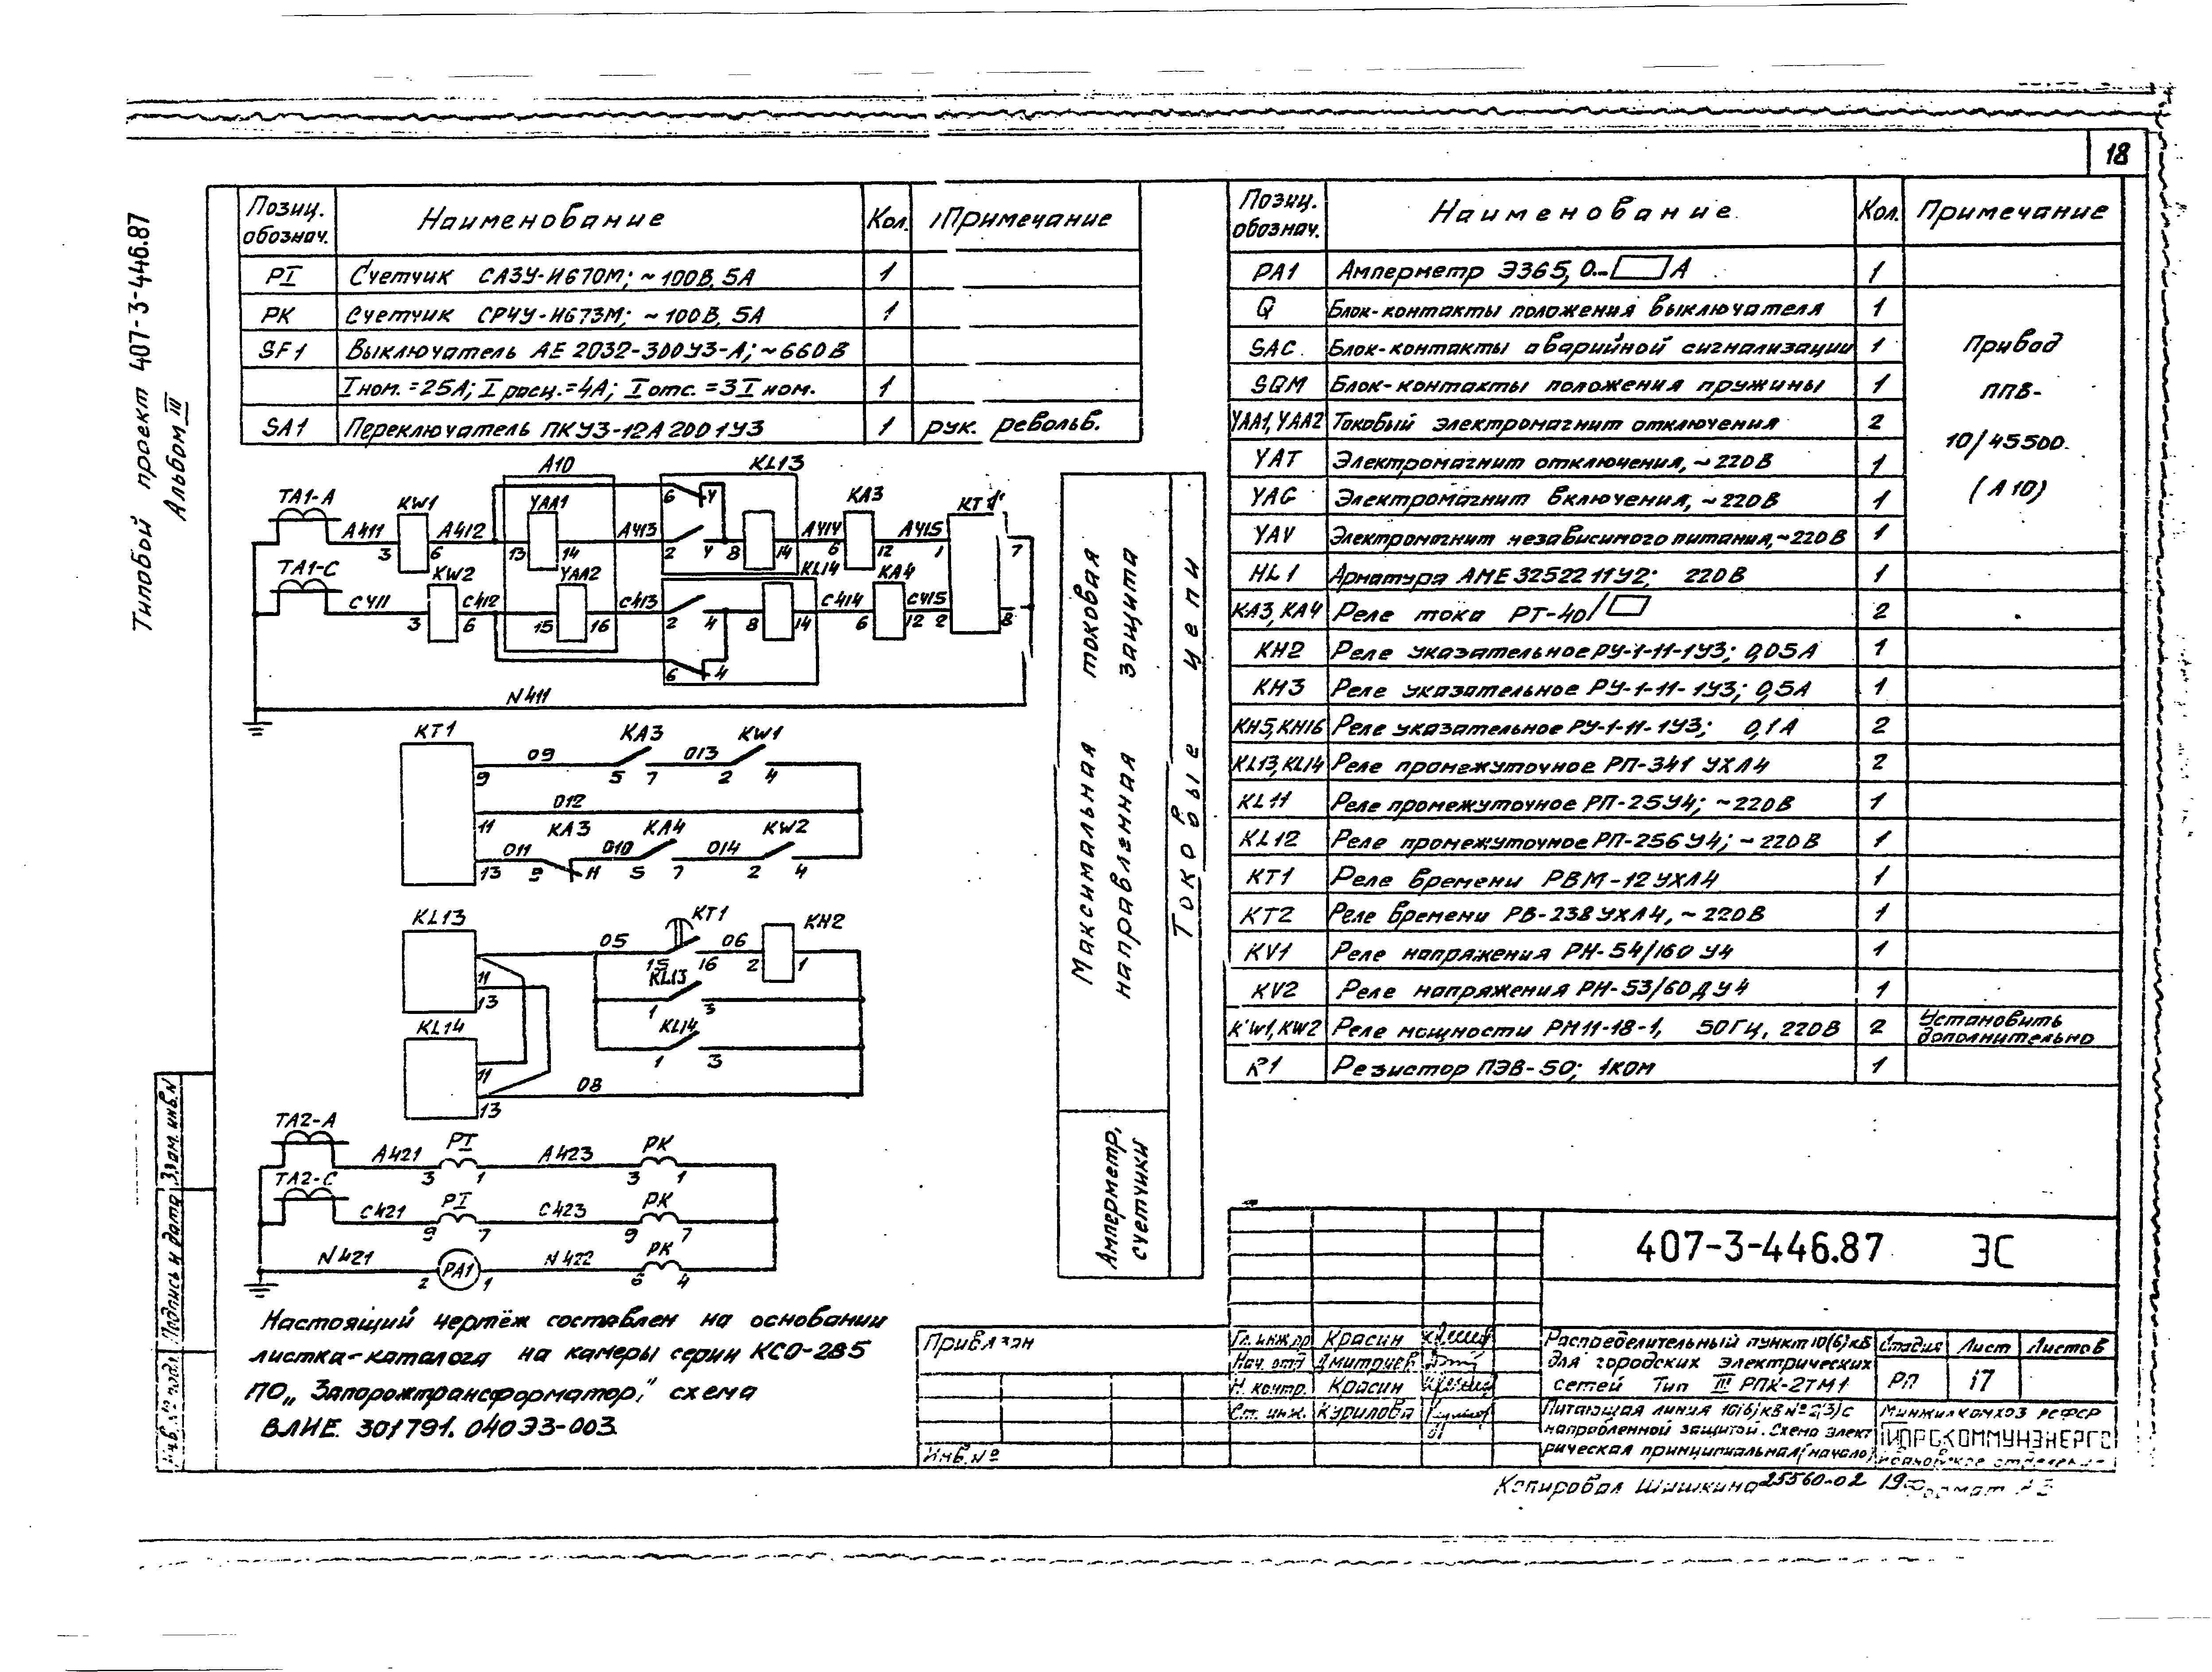 18
Типовой проект 407-3-446.87
Альбом III
Позиц. обознач. Наименование Кол. Примечание
PI Счетчик СА3У-И670М; ~100В, 5А 1
PK Счетчик СР4У-И673М; ~100В, 5А 1
SF1 Выключатель АЕ 2032-300У3-А; ~660В
Iном.=25А; Iрасц.=4А; Iотс.=3Iном. 1
SA1 Переключатель ПКУ3-12А2001У3 1 рук. револьв.
A10 KL13
TA1-A A411 KW1 A412 YAA1 A413 A414 KA3 A415 KT1
3 6 13 14 6 4 2 4 8 14 6 12 1 7
TA1-C C411 KW2 C412 YAA2 C413 KL14 C414 KA4 C415
3 6 15 16 2 4 8 14 6 12 2 8
6 4
N411
KT1
9 09 KA3 5 7 013 KW1 2 4
11 012
13 011 KA3 9 H 010 KA4 5 7 014 KW2 2 4
KL13 05 KT1 15 16 06 KH2 2 1
11 KL13 1 3
13
KL14 KL14 1 3
11
13 08
TA2-A A421 PI 3 1 A423 PK 3 1
TA2-C C421 PI 9 7 C423 PK 9 7
N421 2 PA1 1 N422 PK 6 4
Максимальная токовая
направленная защита
Токовые цепи
Амперметр,
счетчики
Настоящий чертёж составлен на основании
листка-каталога на камеры серии КСО-285
ПО „Запорожтрансформатор," схема
ВЛИЕ. 301791.040Э3-003.
Позиц. обознач. Наименование Кол. Примечание
PA1 Амперметр Э365, 0...А 1
Q Блок-контакты положения выключателя 1
SAC Блок-контакты аварийной сигнализации 1
SQM Блок-контакты положения пружины 1
YAA1, YAA2 Токовый электромагнит отключения 2
YAT Электромагнит отключения, ~220В 1
YAC Электромагнит включения, ~220В 1
YAV Электромагнит независимого питания, ~220В 1
Привод
ППВ-
10/45500.
(A10)
HL1 Арматура АМЕ 3252211У2; 220В 1
KA3, KA4 Реле тока РТ-40/ 2
KH2 Реле указательное РУ-1-11-1У3; 0,05А 1
KH3 Реле указательное РУ-1-11-1У3; 0,5А 1
KH5, KH16 Реле указательное РУ-1-11-1У3; 0,1А 2
KL13, KL14 Реле промежуточное РП-341 УХЛ4 2
KL11 Реле промежуточное РП-25У4; ~220В 1
KL12 Реле промежуточное РП-256У4; ~220В 1
KT1 Реле времени РВМ-12УХЛ4 1
KT2 Реле времени РВ-238УХЛ4, ~220В 1
KV1 Реле напряжения РН-54/160 У4 1
KV2 Реле напряжения РН-53/60ДУ4 1
KW1, KW2 Реле мощности РМ11-18-1, 50Гц, 220В 2 Установить дополнительно
R1 Резистор ПЭВ-50; 1кОм 1
407-3-446.87 ЭС
Привязан
Инв.№
Гл. инж.пр Красин
Нач. отд Дмитриев
Н. контр. Красин
Ст. инж. Курилова
Распределительный пункт 10(6)кВ
для городских электрических
сетей Тип III РПК-2ТМ1
Стадия Лист Листов
РП 17
Питающая линия 10(6)кВ №2(3) с
направленной защитой. Схема элект
рическая принципиальная (начало)
Минжилкомхоз РСФСР
ГИПРОКОММУНЭНЕРГО
Копировал Шишкина 25560-02 19 Формат А3
Взам. инв.N
Подпись и дата
Инв.№ подл.